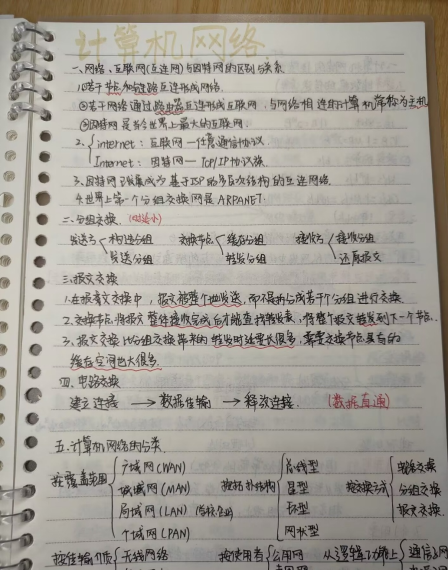 计算机网络
一、网络、互联网(互连网)与因特网的区别与关系
1.①若干节点和链路互连形成网络.
②若干网络通过路由器互连形成互联网,与网络相连的计算机常称为主机
③因特网是当今世界上最大的互联网.
2. internet: 互联网—任意通信协议
Internet: 因特网— TCP/IP协议族.
3.因特网已发展成为基于ISP的多层次结构的互连网络.
4.世界上第一个分组交换网是ARPANET.
二、分组交换.
发送方 构造分组 交换节点 缓存分组 接收方 接收分组
发送分组 转发分组 还原报文
三.报文交换
1.在报文交换中,报文被整个地发送,而不是拆分成若干个分组进行交换
2.交换节点将报文整体接收完成后才能查找转发表,将整个报文转发到下一个节点.
3.报文交换比分组交换带来的转发时延要大很多,需要交换节点具有的
缓存空间也大很多.
四.电路交换
建立连接 → 数据传输 → 释放连接. (数据直通)
五.计算机网络的分类.
按覆盖范围 广域网(WAN) 按拓扑结构 总线型 按交换方式 电路交换
城域网(MAN) 星型 分组交换
局域网(LAN) 环型 报文交换.
个域网(PAN) 网状型
按传输介质 无线网络 按使用者 公用网 从逻辑功能上 通信子网